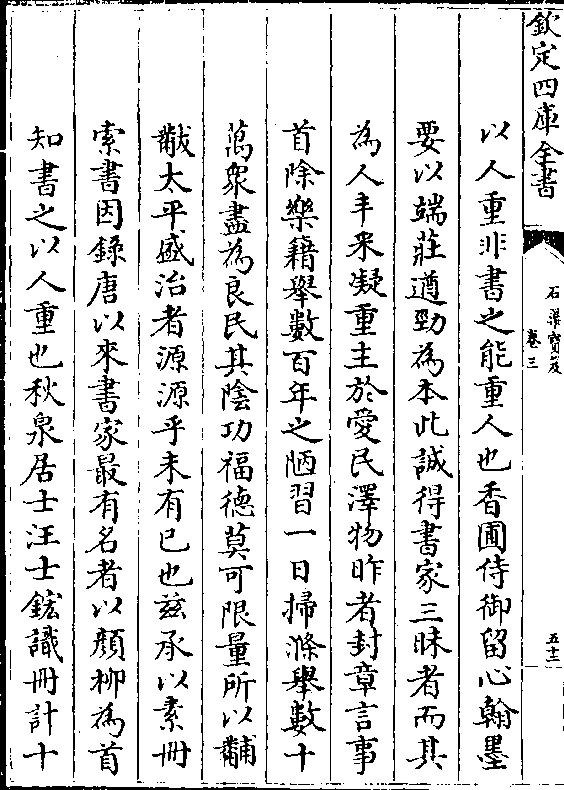 欽定四庫全書
石渠寶笈
卷三
五十二
以人重非書之能重人也香圃侍御留心翰墨
要以端莊遒勁為本此誠得書家三昧者而其
為人丰采凝重主於愛民澤物昨者封章言事
首除樂籍舉數百年之陋習一日掃滌舉數十
萬衆盡為良民其陰功福德莫可限量所以黼
黻太平盛治者源源乎未有已也兹承以素冊
索書因錄唐以來書家最有名者以顔柳為首
知書之以人重也秋泉居士汪士鋐識冊計十